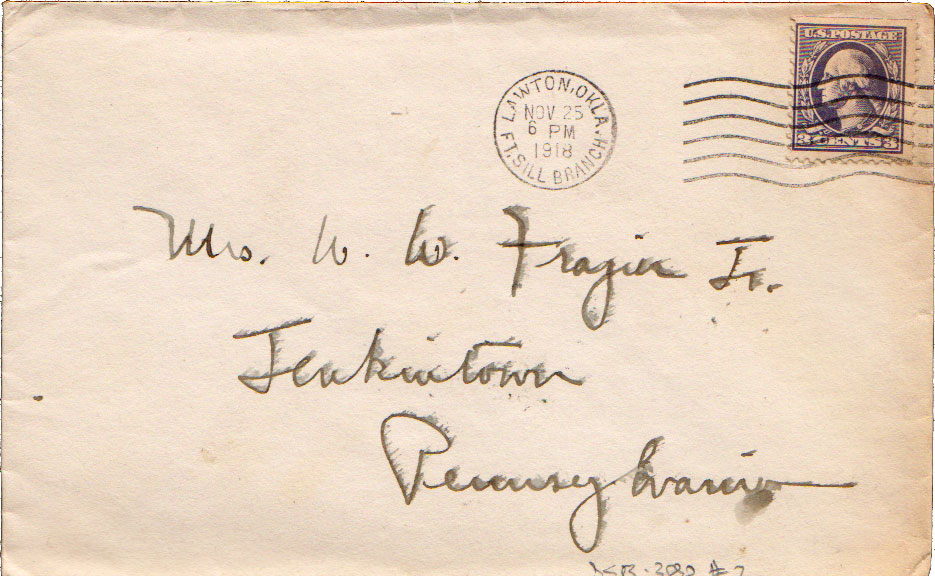 U.S. POSTAGE
3 CENTS 3
LAWTON, OKLA.
NOV 25
6 PM
1918
FT. SILL BRANCH
Mrs. W. W. Frazier Jr.
Jenkintown
Pennsylvania